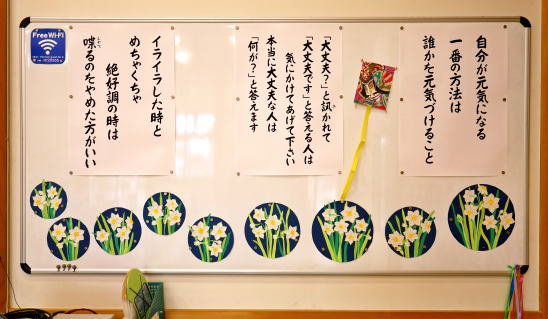 自分が元気になる
一番の方法は
誰かを元気づけること
「大丈夫？」と訊かれて
「大丈夫です」と答える人は
気にかけてあげて下さい
本当に大丈夫な人は
「何が？」と答えます
イライラした時と
めちゃくちゃ
絶好調の時は
喋るのをやめた方がいい
Free Wi-Fi